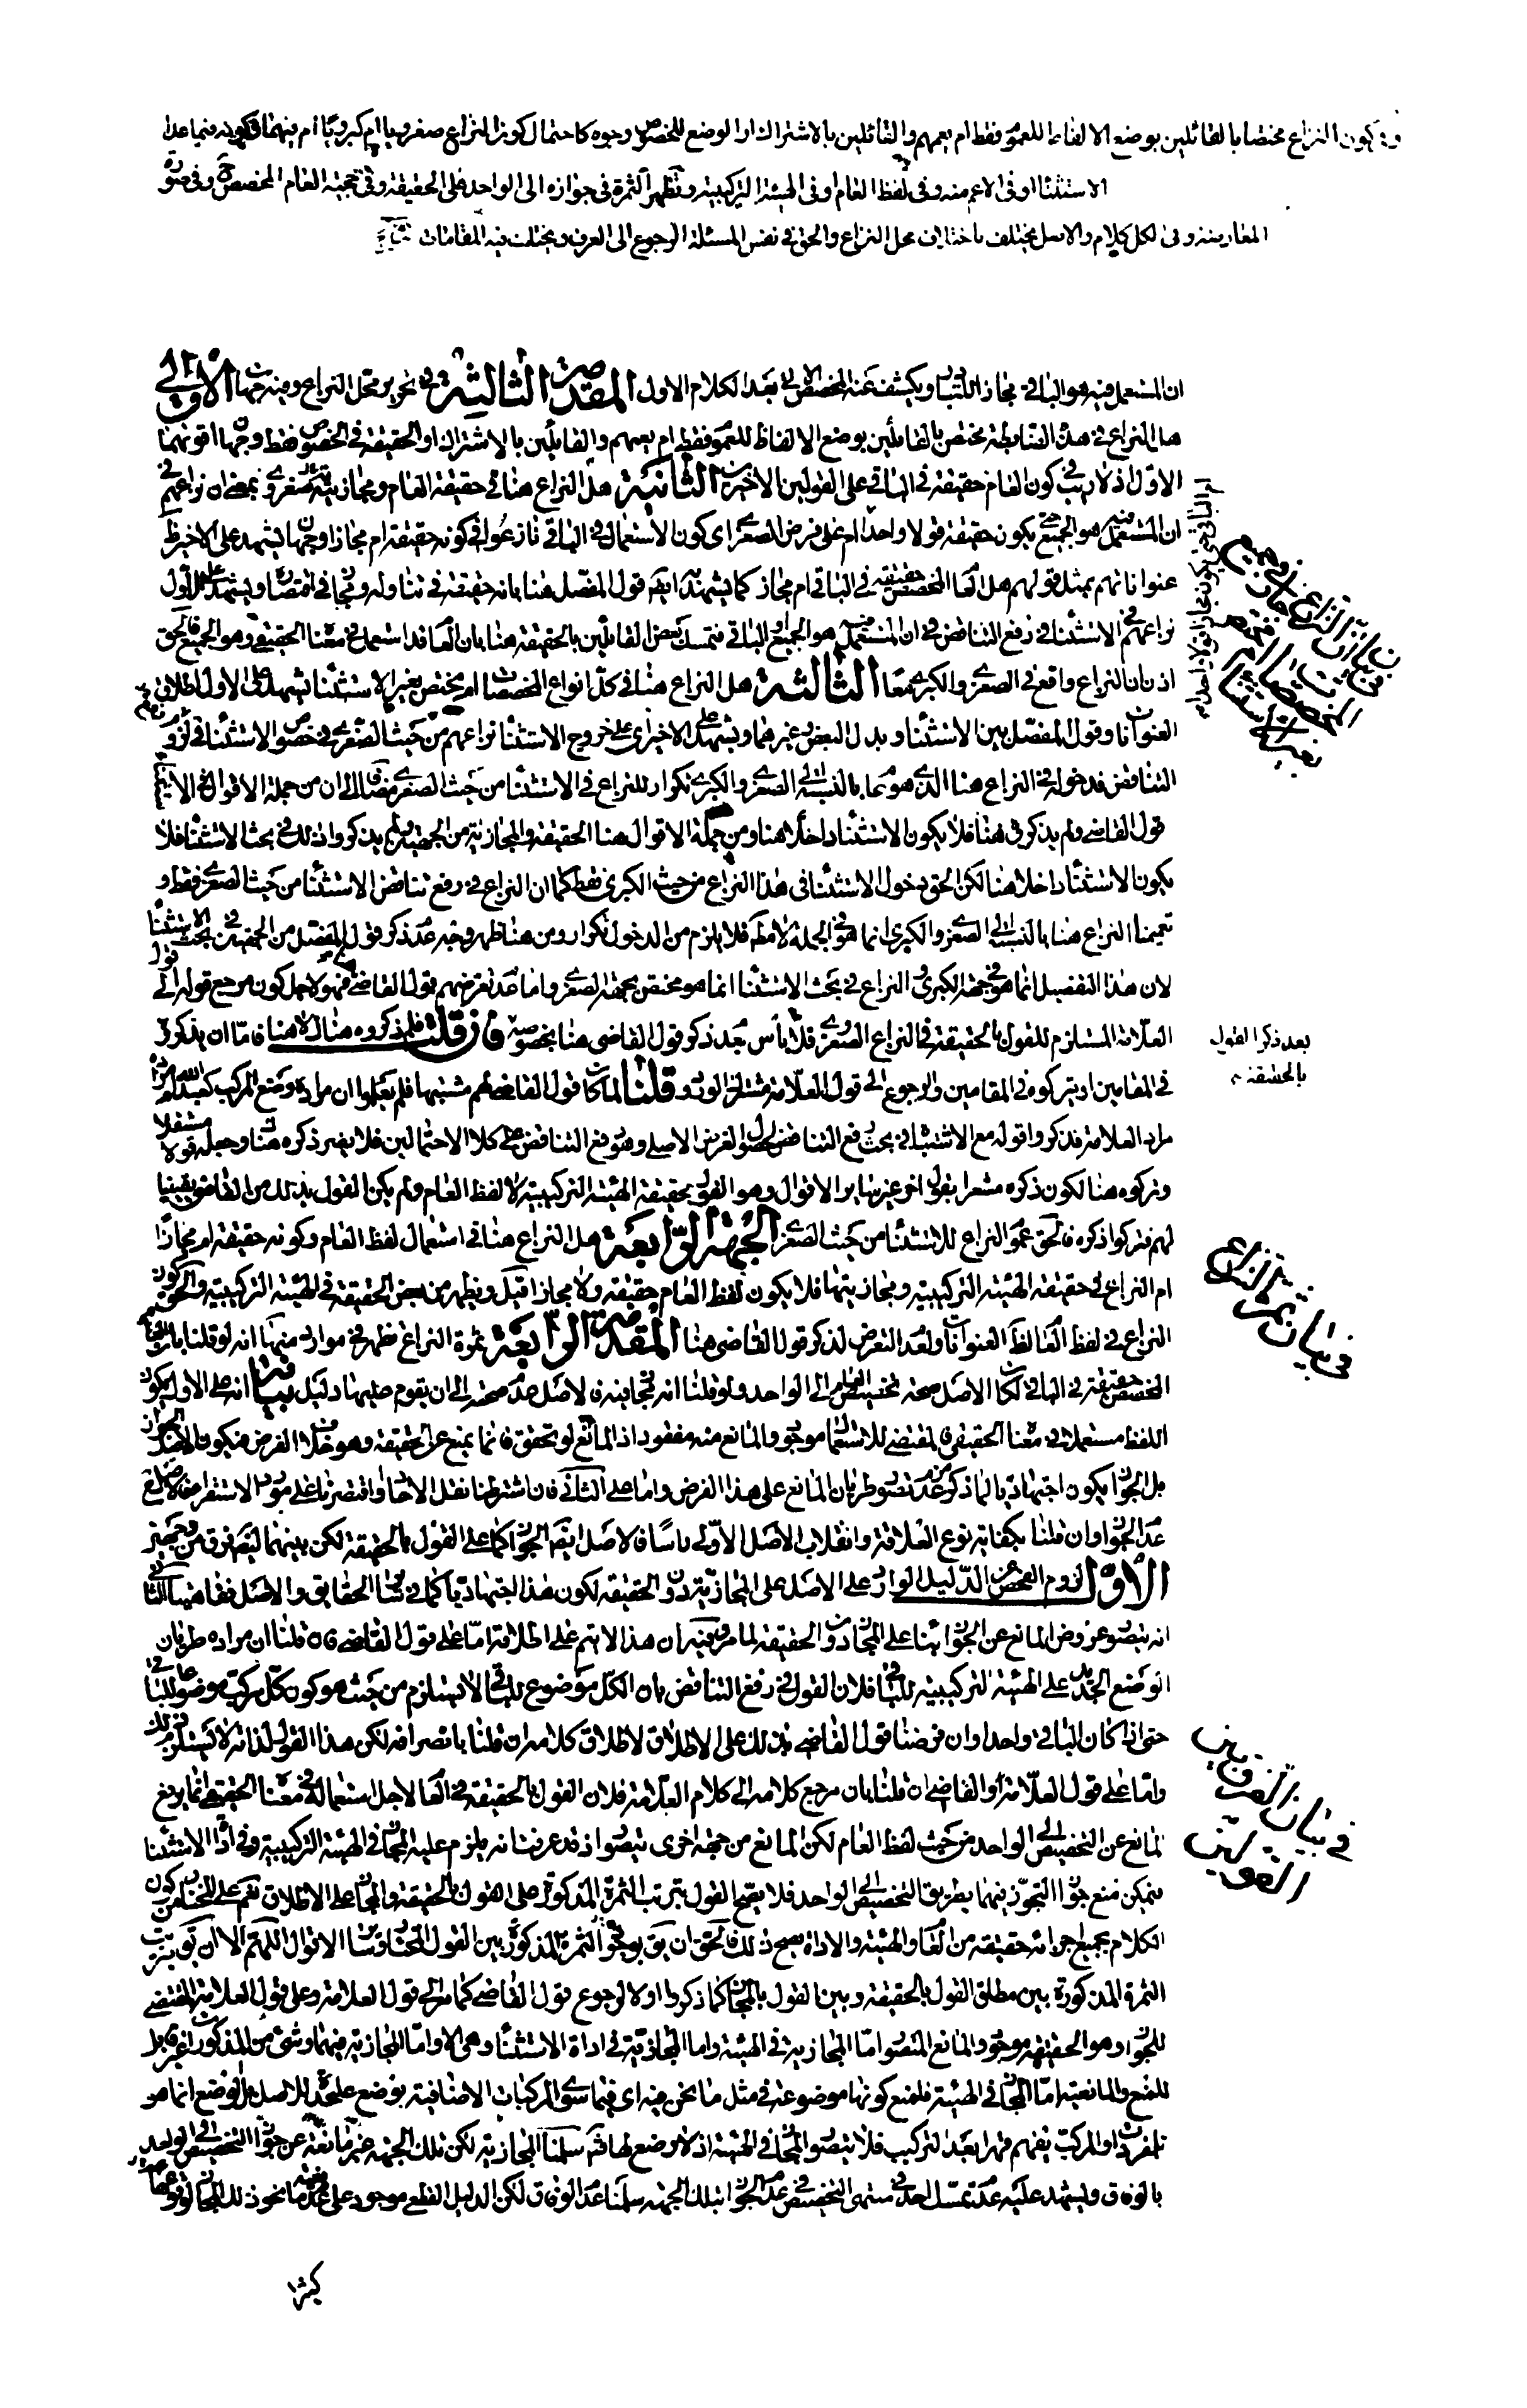 كون النزاع مختصا بالقائلين بوضع الالفاظ للعموم فقط ام يعمهم والقائلين بالاشتراك او الوضع للخصوص وجوه كاحتمال كون النزاع صغرويا ام كبرويا ام فيهما وكونه فيما عدا
الاستثنا او فى الاعم منه وفى لفظ العام او فى الهيئة التركيبية وتظهر الثمرة فى جوازه الى الواحد على الحقيقة وفى حجية العام المخصص وفى صورة
المعارضة وفى لكل كلام والاصل يختلف باختلاف محل النزاع والحق فى نفس المسئلة الرجوع الى العرف ويختلف فيه المقامات
ان المستعمل فيه هو الباقى مجازا ويكشف عنه المخصص بعد الكلام الاول المقدمة الثالثة فى تحرير محل النزاع وفيه جهات الاولى
هل النزاع فى هذه الضابطة مختص بالقائلين بوضع الالفاظ للعموم فقط ام يعمهم والقائلين بالاشتراك او الحقيقة فى الخصوص فقط وجهان اقويهما
الاول اذ لا ريب فى كون العام حقيقة فى الباقى على القولين الاخيرين الثانية هل النزاع هنا فى حقيقة العام ومجازيته صغروى بمعنى ان نزاعهم فى
ان المستعمل فيه هو الجميع حتى يكون حقيقة قولا واحدا ام على فرض الصغرى اى كون الاستعمال فى الباقى نازعوا فى كونه حقيقة ام مجازا وجهان يشهد على الاخير
عنوانهم بمثل قولهم هل العام المخصص حقيقة فى الباقى ام مجاز كما يشهد به ايضا قول المفصل هنا بانه حقيقة فى تناوله ومجاز فى اقتصاره ويشهد على الاول
نزاعهم فى الاستثنا فى دفع التناقض فى ان المستعمل فيه هو الجميع او الباقى فتمسك بعض القائلين بالحقيقة هنا بان العام قد استعمل فى معناه الحقيقى وهو الجميع فالحق
اذن ان النزاع واقع فى الصغرى والكبرى معا الثالثة هل النزاع هنا فى كل انواع المخصصات ام يختص بغير الاستثنا يشهد على الاول اطلاق
العنوانات وقول المفصل بين الاستثنا وبدل البعض وغيرهما ويشهد على الاخير اى على خروج الاستثنا نزاعهم من حيث الصغرى فى خصوص الاستثنا فى
التناقض فدخوله فى النزاع هنا الذى هو عام بالنسبة الى الصغرى والكبرى تكرار للنزاع فى الاستثنا من حيث الصغرى مضافا الى ان من جملة الاقوال
قول القاضى ولم يذكر فى هنا فلا يكون الاستثنا داخلا هنا ومن جملة الاقوال هنا الحقيقة والمجازية من الجهتين ولم يذكروا ذلك فى بحث الاستثنا فلا
يكون الاستثنا داخلا هنا لكن الحق دخول الاستثنا فى هذا النزاع من حيث الكبرى فقط كما ان النزاع فى دفع تناقض الاستثنا من حيث الصغرى فقط و
تعميما النزاع هنا بالنسبة الى الصغرى والكبرى انما هو فى الجملة لا مطلقا فلا يلزم من الدخول تكرار ومن هنا ظهر وجه عدم ذكر قول المفصل من الجهتين فى بحث الاستثنا
لان هذا التفصيل انما هو فى جهة الكبرى والنزاع فى بحث الاستثنا انما هو مختص بجهة الصغرى واما عدم تعرضهم قول القاضى فهو لاجل كون مرجع قوله الى قول
العلامة المستلزم للقول بالحقيقة فى النزاع الصغروى فلا باس بعدم ذكر قول القاضى هنا بخصوصه فان قلت فلم ذكروه هناك لا هنا فاما ان يذكروه
فى المقامين او يتركوه فى المقامين والرجوع الى قول العلامة مشترك الورود قلنا لما كان قول القاضى لهم مشتبها فلم يعلموا ان مراده وضع المركب
مراد العلامة فذكروا قوله مع الاشتباه فى بحث دفع التناقض لحصول الغرض الاصلى وهو دفع التناقض على كلا الاحتمالين فلا يضر ذكره هناك وجعله قولا مستقلا
وتركوه هنا لكون ذكره مشعرا بقول اخر غير ساير الاقوال وهو القول بحقيقة الهيئة التركيبية لا لفظ العام ولم يكن القول بذلك من القاضى يقينيا
لهم فتركوا ذكره فالحق عموم النزاع للاستثنا من حيث الصغرى الجهة الرابعة هل النزاع هنا فى استعمال لفظ العام وكونه حقيقة ام مجازا
ام النزاع فى حقيقة الهيئة التركيبية ومجازيتها فلا يكون لفظ العام حقيقة ولا مجازا قيل ويظهر من بعض الحقيقة فى الهيئة التركيبية والحق كون
النزاع فى لفظ العام لظاهر العنوانات ولعدم التعرض لذكر قول القاضى هنا المقدمة الرابعة ثمرة النزاع تظهر فى موارد منها انه لو قلنا بان العام
المخصص حقيقة فى الباقى لكان الاصل صحة تخصيص العام الى الواحد ولو قلنا انه مجاز فيه فالاصل عدم صحته الى ان يقوم عليها دليل بيانه انه على الاول يكون
اللفظ مستعملا فى معناه الحقيقى فالمقتضى للاستعمال موجود والمانع منه مفقود اذ المانع لو تحقق فانما يمنع عن الحقيقة وهو خلاف الفرض فيكون الاصل الجواز
بل الجواز يكون اجتهاديا لما ذكر من عدم تصور طريان المانع على هذا الفرض واما على الثانى فان اشترطنا نقل الاحاد واقتصرنا على مورد الاستقراء فالاصل
عدم الجواز وان قلنا بكفاية نوع العلاقة وانقلاب الاصل الاولى باسا فالاصل ايضا الجواز كما على القول بالحقيقة لكن بينهما ايضا فرق من وجهين
الاول لزوم الفحص عن الدليل الوارد على الاصل على المجازية دون الحقيقة لكون هذا اجتهاديا كما فى ساير الحقايق والاصل فقاهتيا الثانى
انه يتصور عروض المانع عن الجواز هنا على المجاز دون الحقيقة لما مر وفيه ان هذا لا يتم على اطلاقه اما على قول القاضى فان قلنا ان مراده طريان
الوضع الجديد على الهيئة التركيبية للباقى فلان القول فى دفع التناقض بان الكل موضوع للباقى لا يستلزم من حيث هو كون كل مركب موضوعا للباقى
حتى اذا كان الباقى واحدا وان فرضنا قول القاضى بذلك على الاطلاق لاطلاق كلامه ان قلنا بانصرافه لكن هذا القول لذاته لا يستلزم ذلك
واما على قول العلامة او القاضى ان قلنا بان مرجع كلامه الى كلام العلامة فلان القول بالحقيقة فى العام لاجل استعماله فى معناه الحقيقى انما يرفع
المانع عن التخصيص الى الواحد من حيث لفظ العام لكن المانع من جهة اخرى يتصور اذ قد عرفت انه يلزم عليه المجاز فى الهيئة التركيبية وفى اداة الاستثنا
فيمكن منع جواز التجوز فيهما بطريق التخصيص الى الواحد فلا يصح القول بترتب الثمرة المذكورة على القول بالحقيقة والمجاز على الاطلاق نعم على المختار من كون
الكلام بجميع اجزائه حقيقة من العام والهيئة والاداة يصح ذلك فالحق ان يق بوجود الثمرة المذكورة بين القول المختار وساير الاقوال اللهم الا ان يق بترتب
الثمرة المذكورة بين مطلق القول بالحقيقة وبين القول بالمجاز كما ذكر اولا لرجوع قول القاضى كما مر الى قول العلامة وعلى قول العلامة المقتضى
للجواز وهو الحقيقة موجود والمانع المتصور اما المجازية فى الهيئة واما المجازية فى اداة الاستثنا وهى الا واما المجازية فيهما وشئ من المذكورات غير قابل
للمنع والمانعية اما المجاز فى الهيئة فلمنع كونها موضوعة فى مثل ما نحن فيه اى فيما سوى المركبات الاضافية بوضع عليحدة للاصل بل الوضع انما هو
للمفردات والمركب يفهم قهرا بعد التركيب فلا يتصور المجاز فى الهيئة اذ لا وضع لها ثم سلمنا المجازية لكن تلك الجهة غير مانعة عن جواز التخصيص الى الواحد
بالوفاق ويشهد عليه عدم تمسك احد فى منتهى التخصيص فى عدم الجواز بتلك الجهة سلمنا عدم الوفاق لكن الدليل القطعى موجود على عدم مانعية نحو ذلك المجاز لوقوعه
كثيرا
فى بيان ان النزاع
بعد ذكر القول
بالحقيقة
فى بيان ثمرة النزاع
فى بيان الفرق بين
القولين